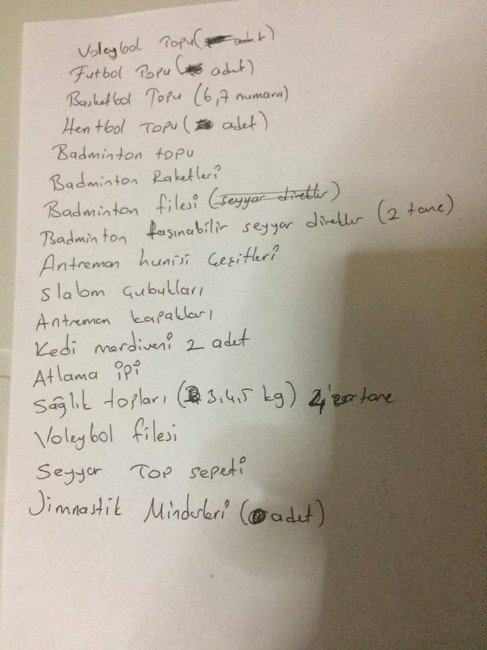 Voleybol Topu ( adet)
Futbol Topu ( adet)
Basketbol Topu (6,7 numara)
Hentbol Topu ( adet)
Badminton topu
Badminton Raketleri
Badminton filesi (seyyar direkler)
Badminton taşınabilir seyyar direkler (2 tane)
Antreman hunisi Çeşitleri
Slalom Çubukları
Antreman kapakları
Kedi merdiveni 2 adet
Atlama ipi
Sağlık topları ( 3,4,5 kg) tane
Voleybol filesi
Seyyar Top sepeti
Jimnastik Minderleri ( adet)